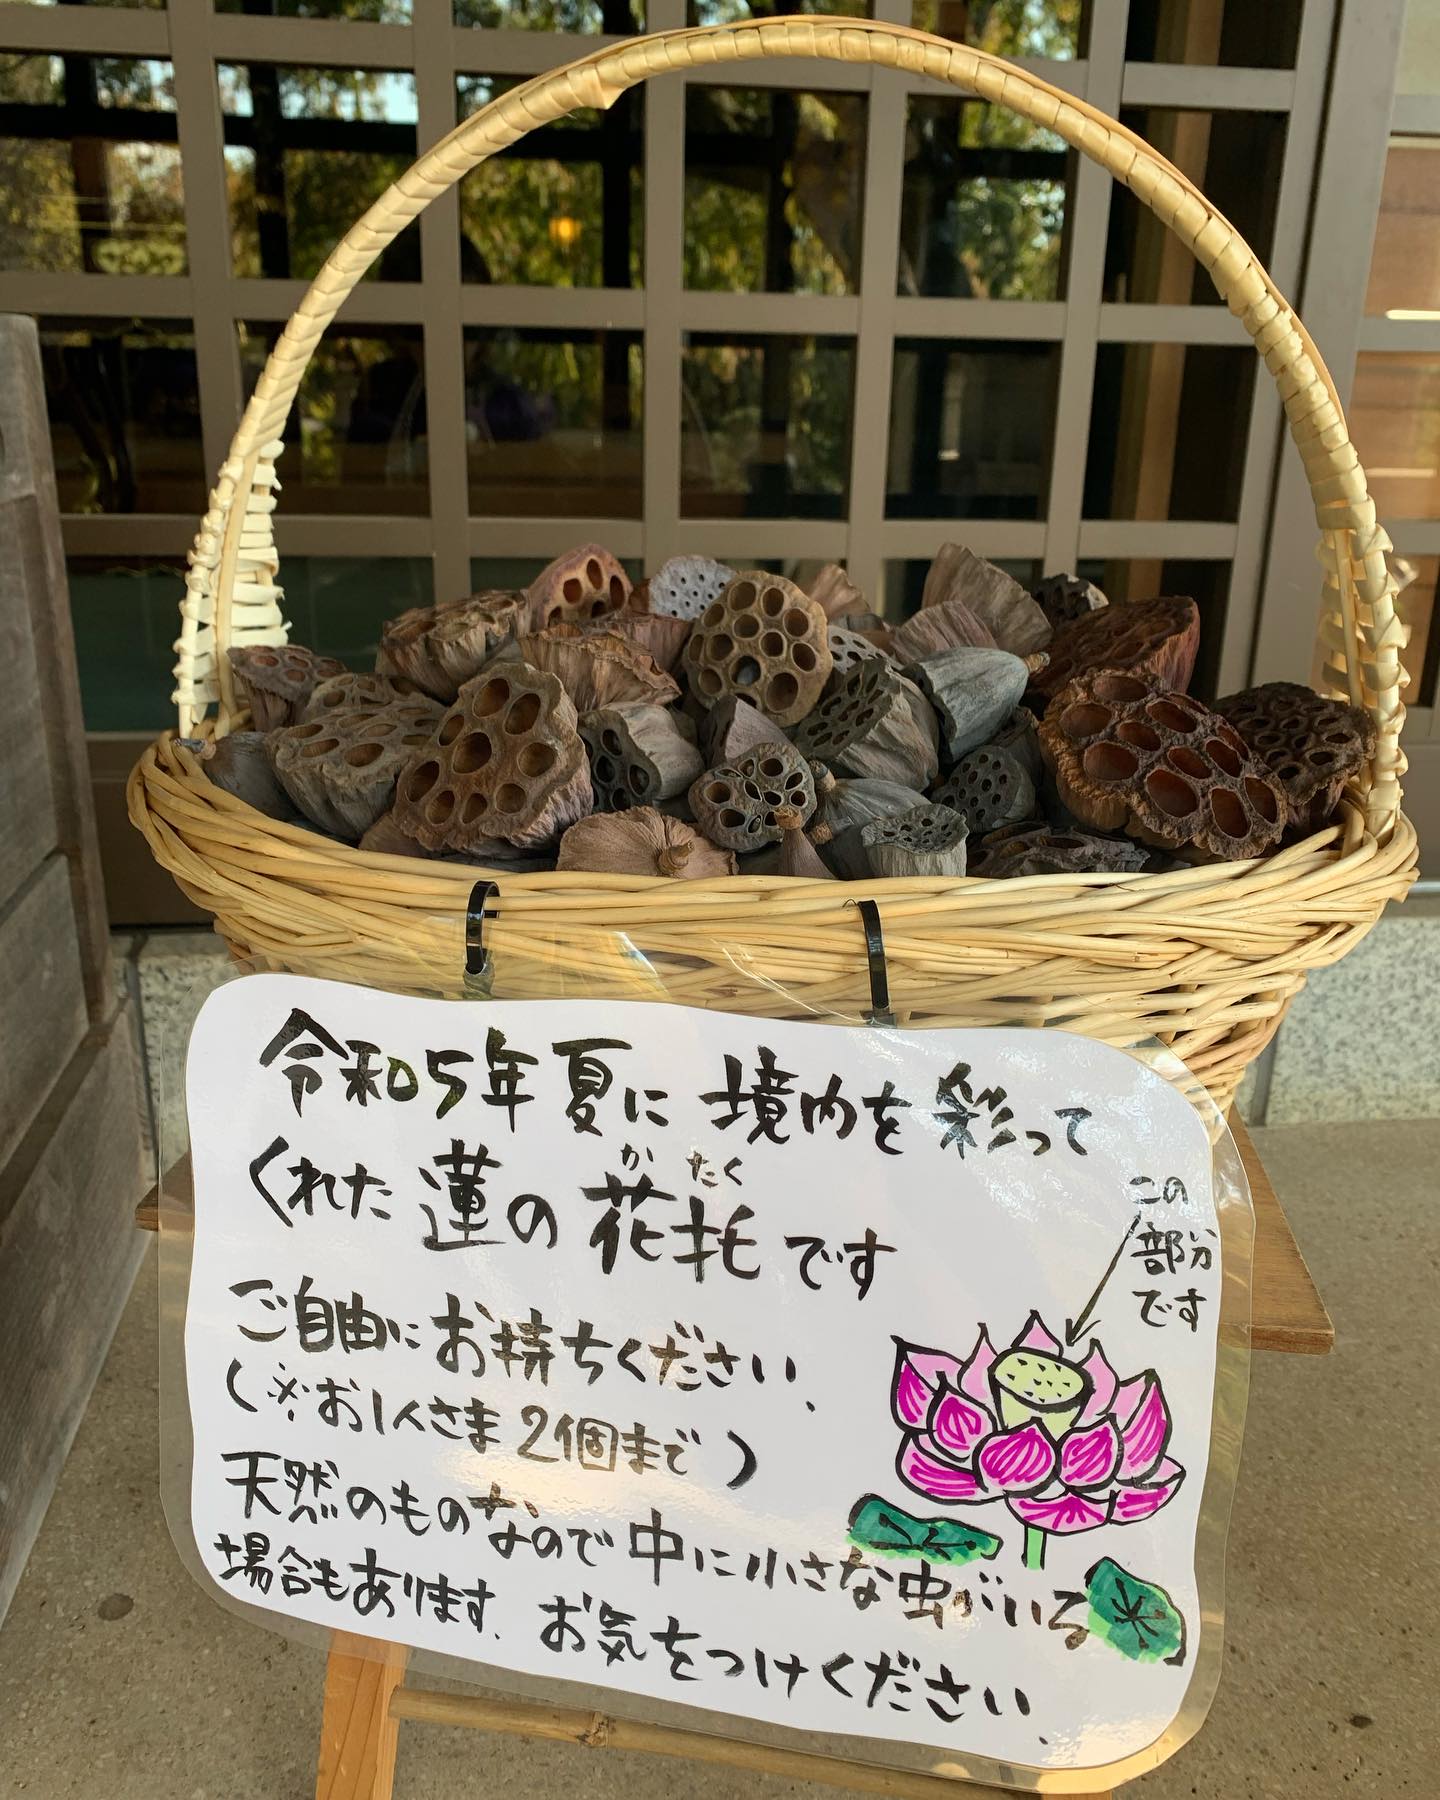 令和5年夏に境内を彩って
くれた蓮の花托です
かたく
この
部分
です
ご自由にお持ちください、
(※お1人さま2個まで)
天然のものなので中に小さな虫がいる
場合もあります、お気をつけください、